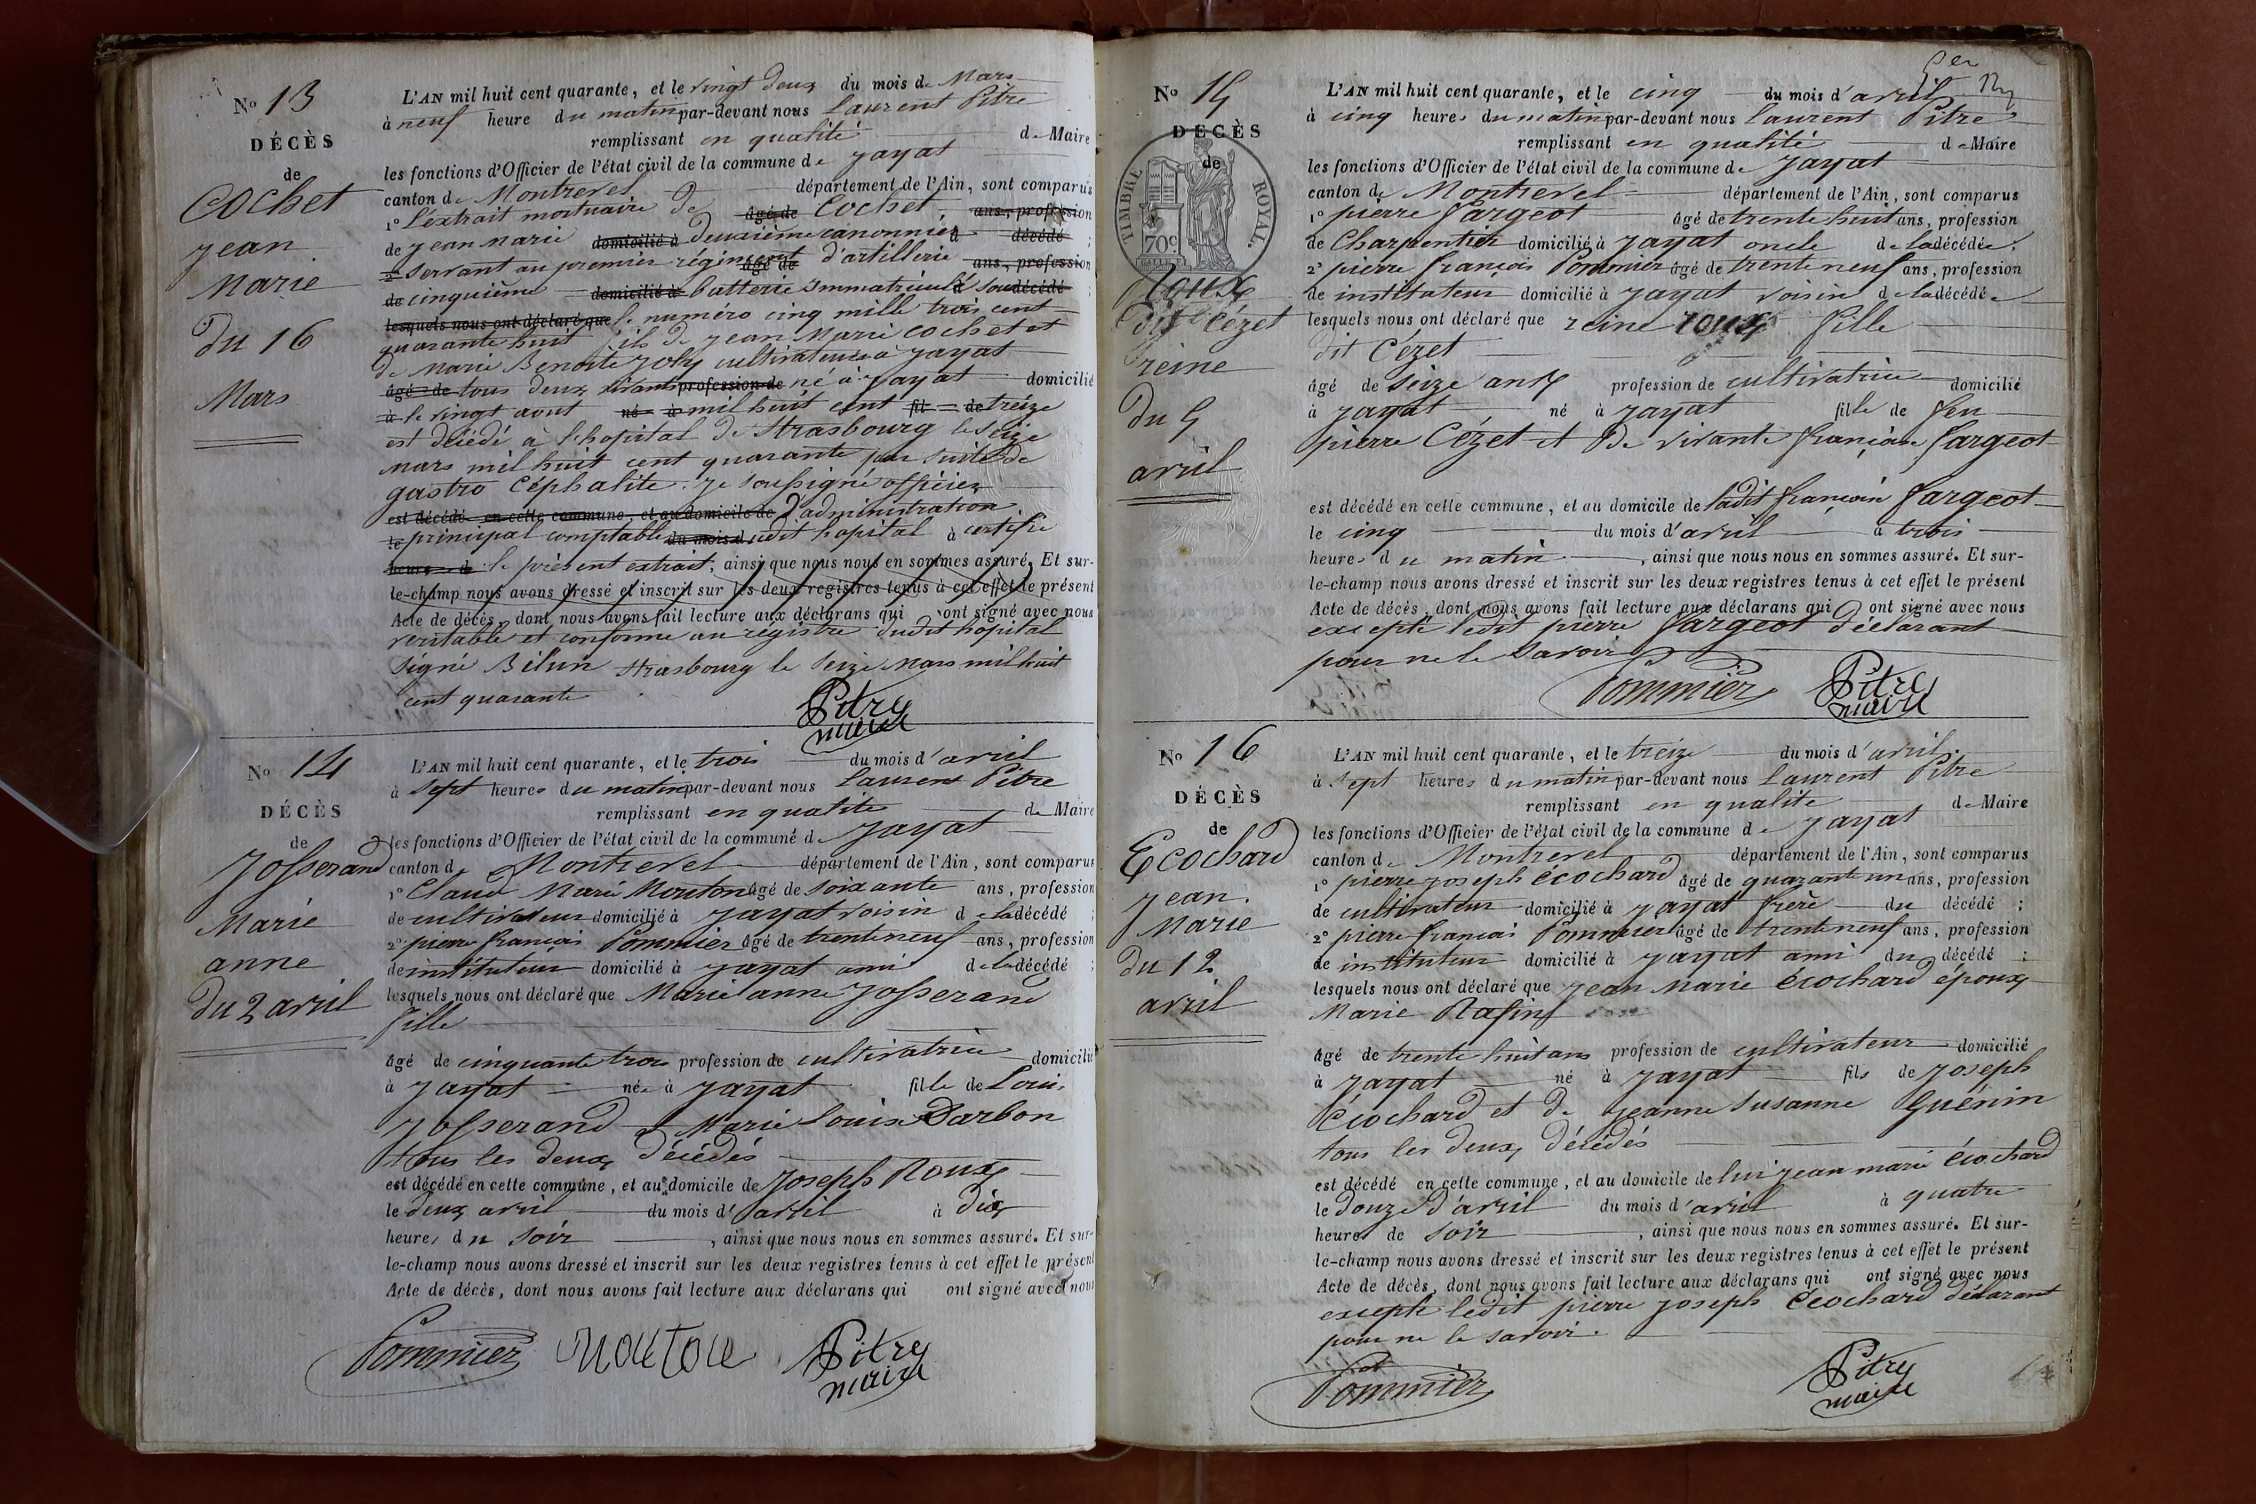 No 13
DÉCÈS
de
Cochet
jean
Marie
du 16
Mars
L'AN mil huit cent quarante, et le vingt deux du mois de Mars
à neuf heure du matin par-devant nous Laurent Pitre
remplissant en qualité de Maire
les fonctions d'Officier de l'état civil de la commune de Jayat
canton de Montrevel département de l'Ain, sont comparus
1º L'extrait mortuaire de âgé de Cochet, ans, profession
de jean Marie domicilié à deuxième canonnier décédé ;
2º servant au premier régiment âgé de d'artillerie ans, profession
de cinquième domicilié à batterie immatriculé sou décédé ;
lesquels nous ont déclaré que le numéro cinq mille trois cent
quarante huit fils de jean Marie Cochet et
de Marie Benoite Joly cultivateurs à Jayat
âgé de tous deux vivant profession de né à Jayat domicilié
à le vingt aout né à mil huit cent fil de treize
est décédé à l'hopital de Strasbourg le seize
Mars mil huit cent quarante par suite de
gastro Céphalite. je soussigné officier
est décédé en cette commune, et au domicile de d'administration
le principal comptable du mois d dudit hopital à certifie
heure de le présent extrait, ainsi que nous nous en sommes assuré. Et sur-
le-champ nous avons dressé et inscrit sur les deux registres tenus à cet effet le présent
Acte de décès, dont nous avons fait lecture aux déclarans qui ont signé avec nous
véritable et conforme au régistre dudit hopital
signé Strasbourg le seize Mars mil huit
cent quarante
Pitre
maire
No 14
DÉCÈS
de
Josserand
Marie
anne
du 2 avril
L'AN mil huit cent quarante, et le trois du mois d'avril
à sept heures du matin par-devant nous Laurent Pitre
remplissant en qualité de Maire
les fonctions d'Officier de l'état civil de la commune de Jayat
canton de Montrevel département de l'Ain, sont comparus
1º Claude Marie Mouton âgé de soixante ans, profession
de cultivateur domicilié à Jayat voisin de la décédé ;
2º pierre françois Pommier âgé de trente neuf ans, profession
de instituteur domicilié à Jayat ami de la décédé ;
lesquels nous ont déclaré que Marie anne Josserand
fille
âgé de cinquante trois profession de cultivatrice domicilié
à Jayat née à Jayat fille de Louis
Josserand et Marie Louise Darbon
tous les deux décédés
est décédé en cette commune, et au domicile de Joseph Roux
le deux avril du mois d'avril à dix
heures du soir , ainsi que nous nous en sommes assuré. Et sur-
le-champ nous avons dressé et inscrit sur les deux registres tenus à cet effet le présent
Acte de décès, dont nous avons fait lecture aux déclarans qui ont signé avec nous
Pommier Mouton Pitre
maire
No 15
DÉCÈS
de
TIMBRE ROYAL
70 c
Roux
dit Cézet
reine
du 5
avril
L'AN mil huit cent quarante, et le cinq du mois d'avril
à cinq heures du matin par-devant nous Laurent Pitre
remplissant en qualité de Maire
les fonctions d'Officier de l'état civil de la commune de Jayat
canton de Montrevel département de l'Ain, sont comparus
1º pierre fargeot âgé de trente huit ans, profession
de Charpentier domicilié à Jayat oncle de la décédée ;
2º pierre françois Pommier âgé de trente neuf ans, profession
de instituteur domicilié à Jayat voisin de la décédée
lesquels nous ont déclaré que reine roux fille
dit Cézet
âgé de seize ans profession de cultivatrice domicilié
à Jayat né à Jayat fille de feu
pierre Cézet et de vivante françoise fargeot
est décédé en cette commune, et au domicile de ladit françoise fargeot
le cinq du mois d'avril à trois
heures du matin , ainsi que nous nous en sommes assuré. Et sur-
le-champ nous avons dressé et inscrit sur les deux registres tenus à cet effet le présent
Acte de décès, dont nous avons fait lecture aux déclarans qui ont signé avec nous
excepté ledit pierre fargeot déclarant
pour ne le savoir
Pommier Pitre
maire
No 16
DÉCÈS
de
Ecochard
jean
Marie
du 12
avril
L'AN mil huit cent quarante, et le treize du mois d'avril
à sept heures du matin par-devant nous Laurent Pitre
remplissant en qualité de Maire
les fonctions d'Officier de l'état civil de la commune de Jayat
canton de Montrevel département de l'Ain, sont comparus
1º pierre joseph écochard âgé de quarante un ans, profession
de cultivateur domicilié à Jayat frère du décédé ;
2º pierre françois Pommier âgé de trente neuf ans, profession
de instituteur domicilié à Jayat ami du décédé ;
lesquels nous ont déclaré que jean Marie écochard époux
Marie Rafin
âgé de trente huit ans profession de cultivateur domicilié
à Jayat né à Jayat fils de joseph
écochard et de jeanne susanne Guérin
tous les deux décédés
est décédé en cette commune, et au domicile de lui jean marie écochard
le douze d'avril du mois d'avril à quatre
heures de soir , ainsi que nous nous en sommes assuré. Et sur-
le-champ nous avons dressé et inscrit sur les deux registres tenus à cet effet le présent
Acte de décès, dont nous avons fait lecture aux déclarans qui ont signé avec nous
excepté ledit pierre joseph écochard déclarant
pour ne le savoir.
Pommier Pitre
maire